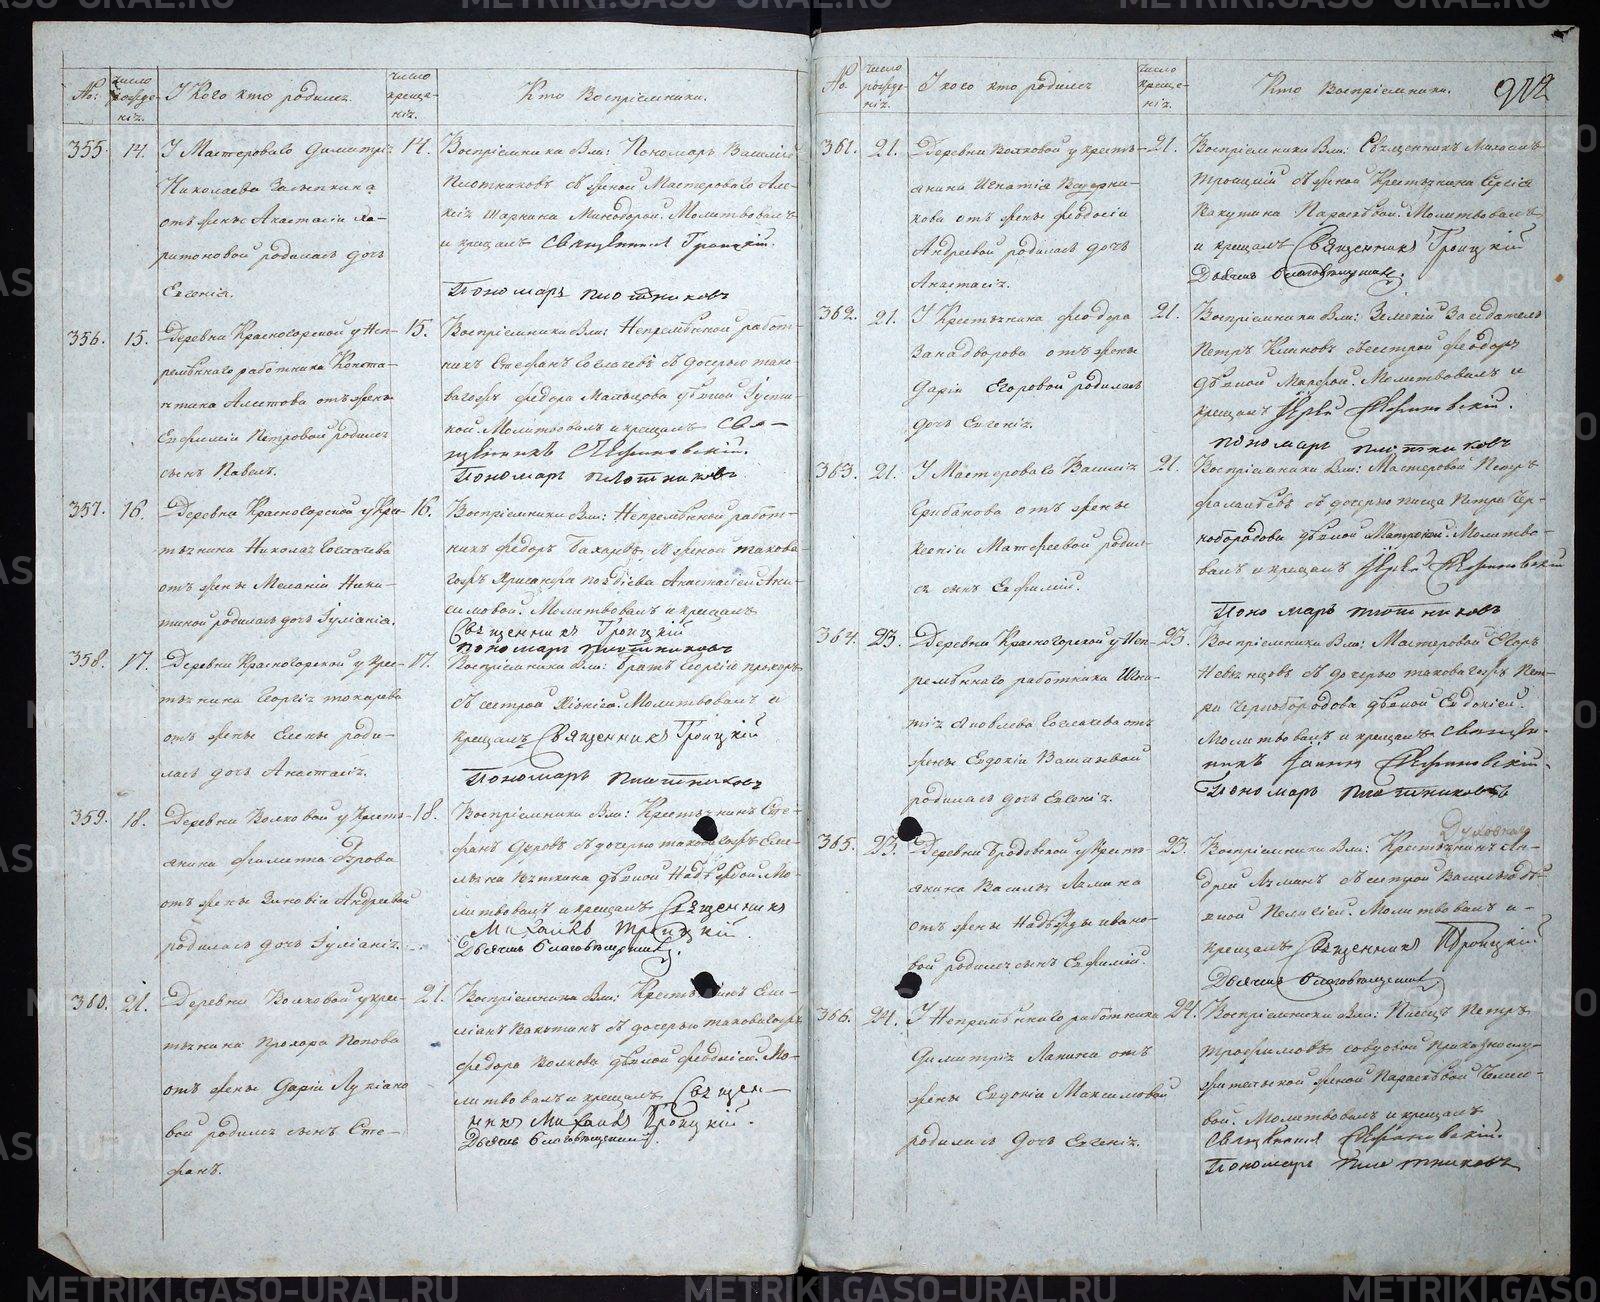 No:
число рожде- нія.
У кого кто родился.
число креще- нія.
Кто Воспріемники.
355.
14.
У Мастероваго Димитрія
Николаева
отъ жены Анастасіи Ха-
ритоновой родилась дочь
Евгенія.
14.
Воспріемника Были: Пономарь Василій
Плотниковъ съ женой Мастероваго Але-
ксія Шаркина Минодорой. Молитвовалъ
и крещалъ Священникъ Троицкій.
Пономарь Плотниковъ
356.
15.
Деревни Красногорской у Неп-
ремѣннаго работника Конста-
нтина Аметова отъ жены
Евфиміи Петровой родился
сынъ Павелъ.
15.
Воспріемники Были: Непремѣнной работ-
никъ Стефанъ Согачевъ съ дочерью тако-
вагожъ Федора Мальцова дѣвицой Іусти-
ной. Молитвовалъ и крещалъ Свя-
щенникъ
Пономарь Плотниковъ
357.
16.
Деревни Красногорской у Кре-
стьянина Николая
отъ жены Меланіи Ники-
тиной родилась дочь Іуліанія.
16.
Воспріемники Были: Непремѣнной работ-
никъ Федоръ Бахаревъ съ женой таково-
гожъ Хрисанфа Поздѣева Анастасіей Ани-
симовой. Молитвовалъ и крещалъ
Священникъ Троицкій
Пономарь Плотниковъ
358.
17.
Деревни Красногорской у Крес-
тьянина Георгія Токарева
отъ жены Елены роди-
лась дочь Анастасія.
17.
Воспріемники Были: Братъ Георгія Прохоръ
съ сестрой Хіоніей. Молитвовалъ и
крещалъ Священникъ Троицкій
Пономарь Плотниковъ
359.
18.
Деревни Волковой у Кресть-
янина Филиппа
отъ жены Зиновіи Андреевой
родилась дочь Іуліанія.
18.
Воспріемники Были: Крестьянинъ Сте-
фанъ съ дочерью таковагожъ Еме-
льяна дѣвицой Надеждой. Мо-
литвовалъ и крещалъ Священникъ
Михаилъ Троицкій.
Дьячекъ Благовѣщенскій.
360.
21.
Деревни Волковой у крес-
тьянина Прохора Попова
отъ жены Даріи Лукіано-
вой родился сынъ Сте-
фанъ.
21.
Воспріемника Были: Крестьянинъ Еме-
ліанъ съ дочерью таковагожъ
Федора Волкова дѣвицой Феодосіей. Мо-
литвовалъ и крещалъ Священ-
никъ Михаилъ Троицкій.
Дьячекъ Благовѣщенскій.
No.
число рожде- нія.
У кого кто родился
число креще- нія.
Кто Воспріемники.
902
361.
21.
Деревни Волковой у кресть-
янина Игнатія
кова отъ жены Феодосіи
Андреевой родилась дочь
Анастасія.
21.
Воспріемники Были: Священникъ Михаилъ
Троицкій съ женой Крестьянина Сергія
Вакутина Параскевой. Молитвовалъ
и крещалъ Священникъ Троицкій
Дьячекъ Благовѣщенскій.
362.
21.
У Крестьянина Феодора
Занадворова отъ жены
Даріи Егоровой родилась
дочь Евгенія.
21.
Воспріемники Были: Земскій Заседатель
Петръ Климовъ съ сестрой Феодора
дѣвицой Марфой. Молитвовалъ и
крещалъ Іерей
Пономарь Плотниковъ
363.
21.
У Мастероваго Василія
Грибанова отъ жены
Ксеніи Матфеевой родил-
ся сынъ Евфимій.
21.
Воспріемники Были: Мастеровой Петръ
Фалалѣевъ съ дочерью писца Петра Чер-
нобородова дѣвицой Матреной. Молитво-
валъ и крещалъ Іерей
Пономарь Плотниковъ
364.
23.
Деревни Красногорской у Неп-
ремѣннаго работника Игна-
тія Яковлева отъ
жены Евдокіи
родилась дочь Евгенія.
23.
Воспріемники Были: Мастеровой Егоръ
съ дочерью таковагожъ Пет-
ра Чернобородова дѣвицой Евдокіей.
Молитвовалъ и крещалъ Священ-
никъ Іоаннъ
Пономарь Плотниковъ
365.
23.
Деревни Бродовской у Крест-
янина Василья Лямина
отъ жены Надежды Ивано-
вой родился сынъ Евфимій.
23.
Воспріемники Были: Крестьянинъ Ан-
дрей Ляминъ съ сестрой Василья дѣ-
вицой Пелагіей. Молитвовалъ и
крещалъ Священникъ Троицкій
Дьячекъ Благовѣщенскій
366.
24.
У Непремѣннаго работника
Димитрія Лапина отъ
жены Евдокіи Максимовой
родилась дочь Евгенія.
24.
Воспріемники Были: Писецъ Петръ
Трофимовъ со вдовой Приказнослу-
жительской женой Параскѣвой
вой. Молитвовалъ и крещалъ
Священникъ
Пономарь Плотниковъ
METRIKI.GASO-URAL.RU